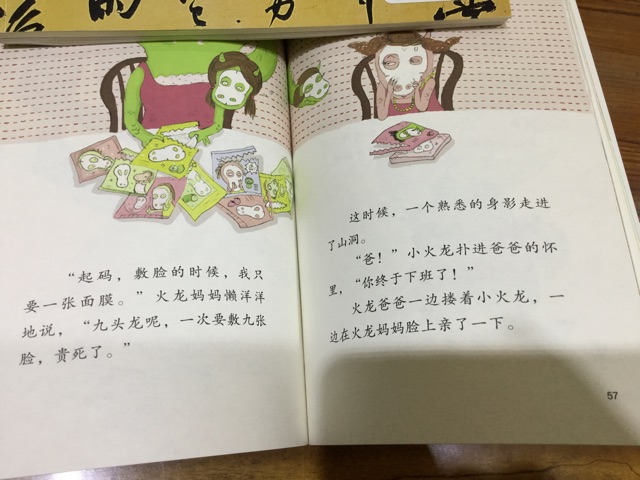 的
"起码，敷脸的时候，我只
要一张面膜。"火龙妈妈懒洋洋
地说，"九头龙呢，一次要敷九张
脸，贵死了。"
这时候，一个熟悉的身影走进
了山洞。
"爸！"小火龙扑进爸爸的怀
里，"你终于下班了！"
火龙爸爸一边搂着小火龙，一
边在火龙妈妈脸上亲了一下。
57